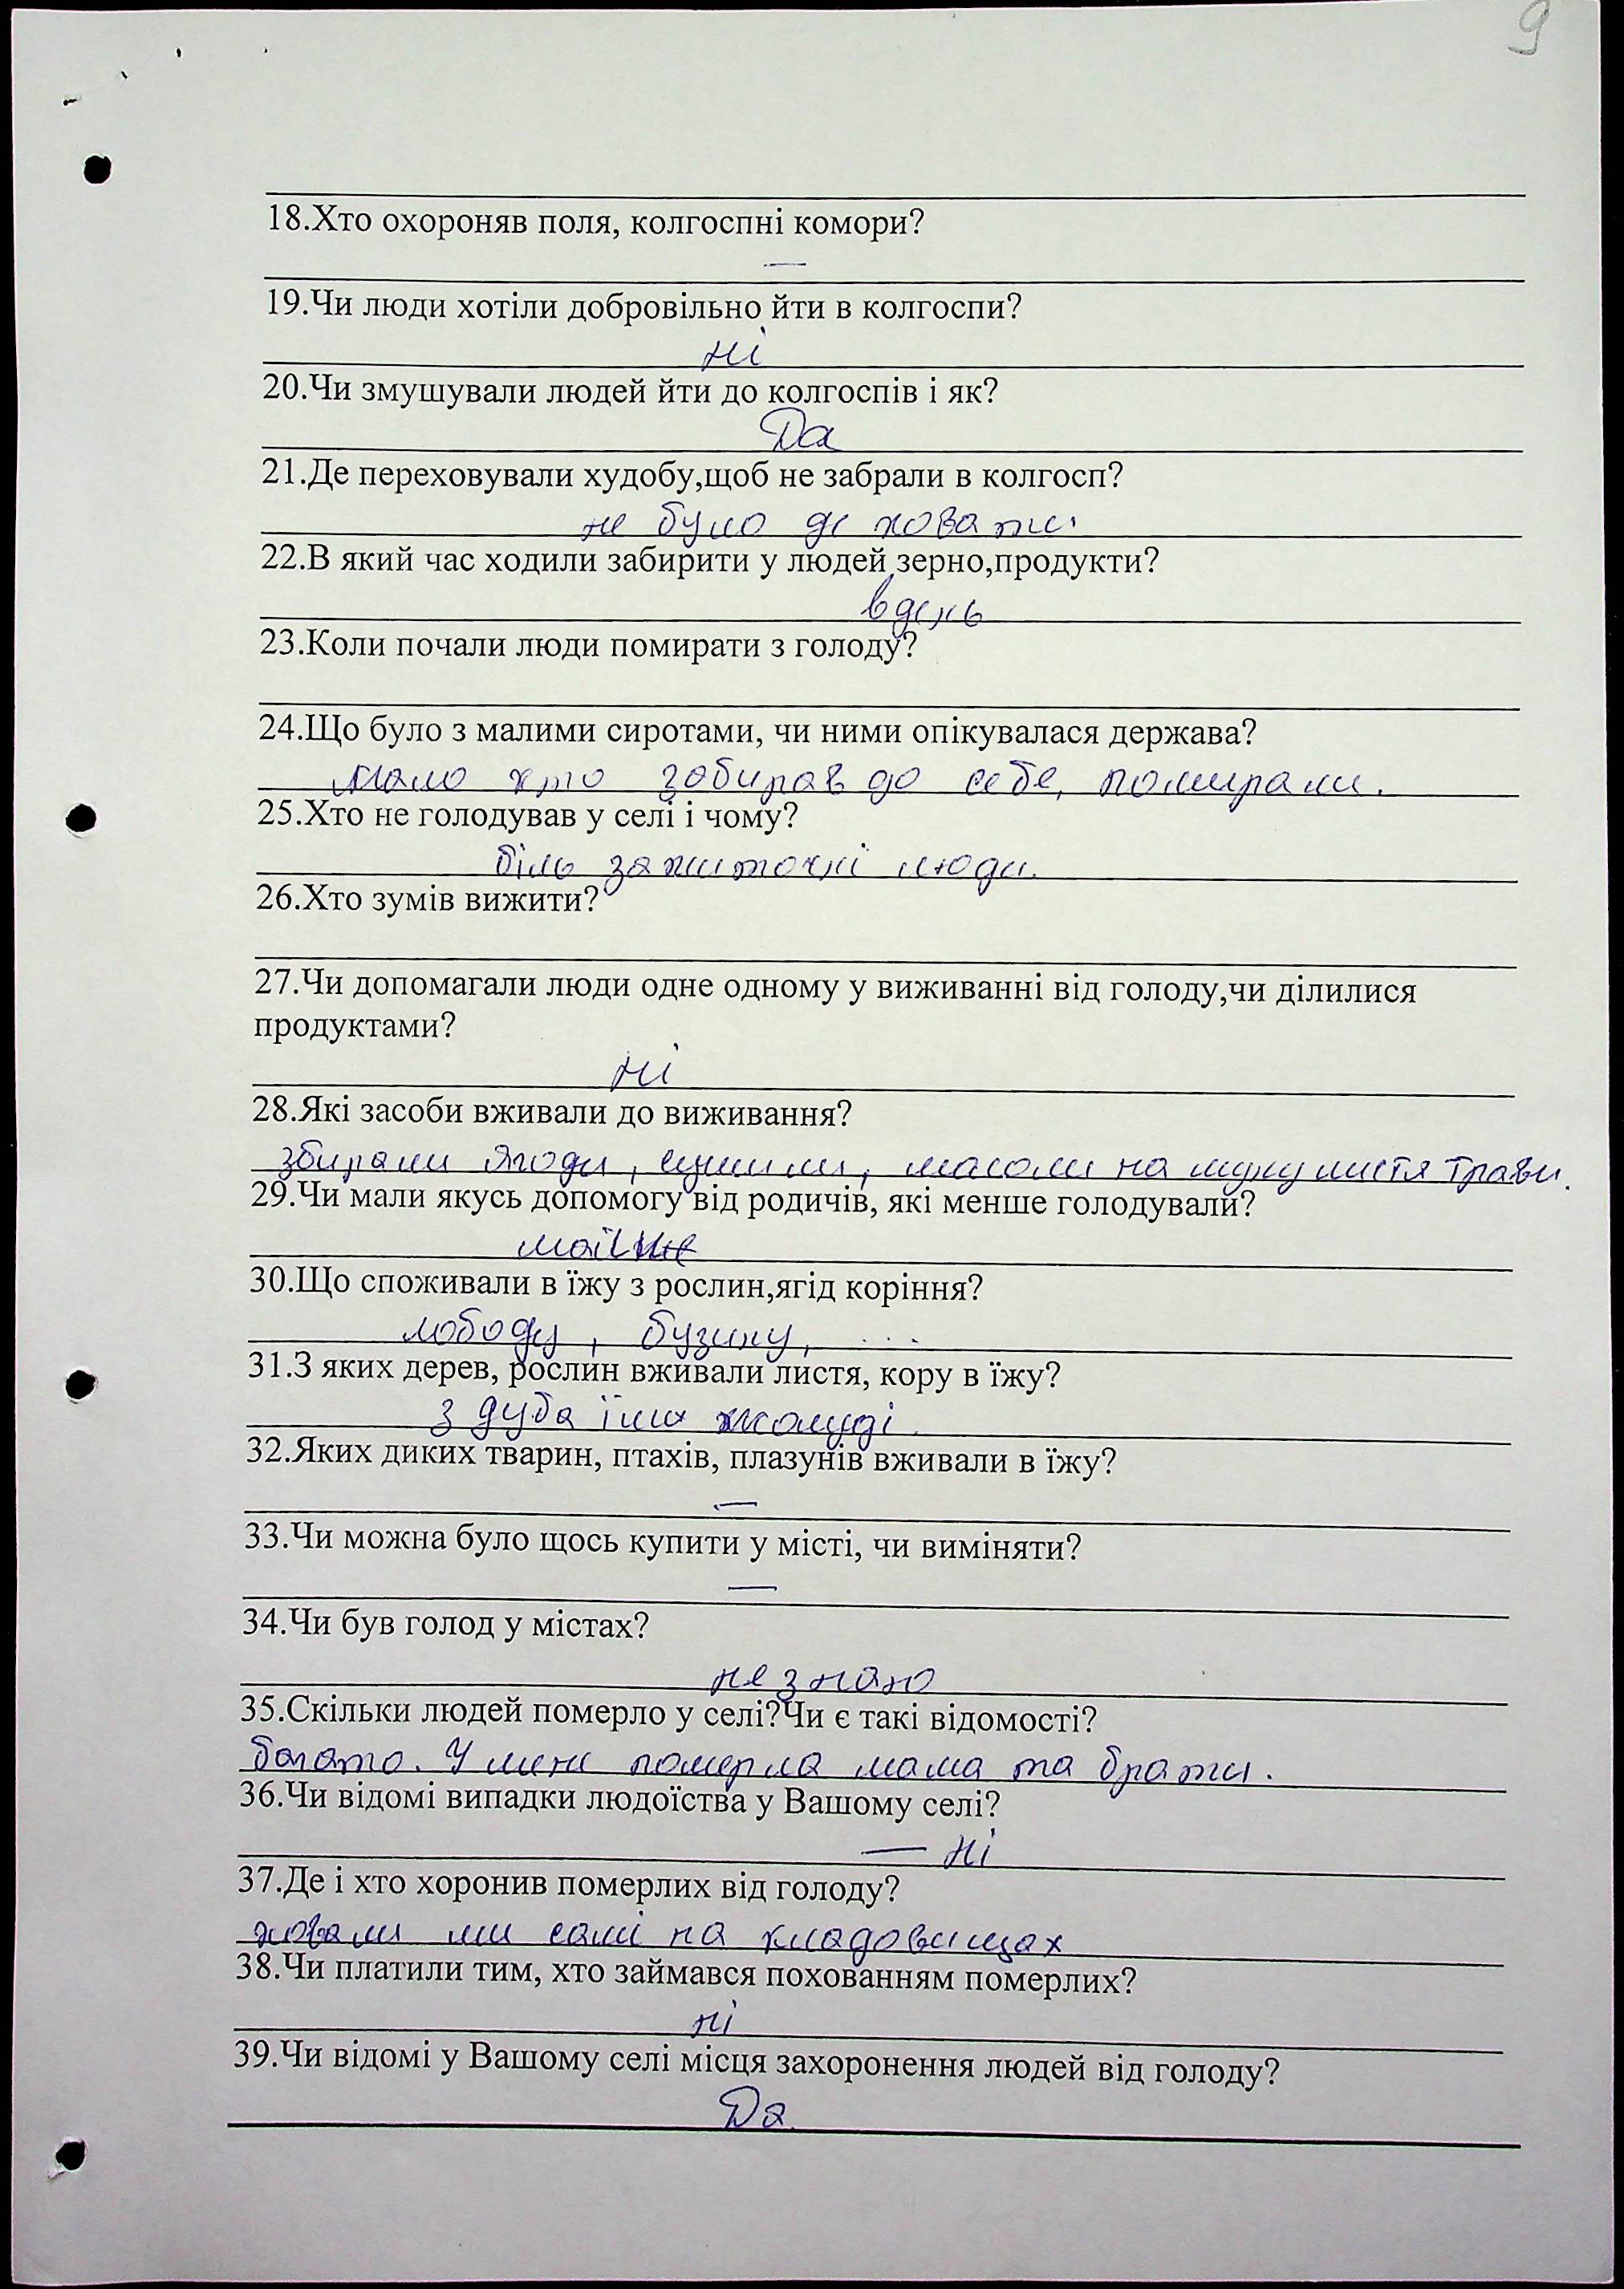 9
18.Хто охороняв поля, колгоспні комори?
—
19.Чи люди хотіли добровільно йти в колгоспи?
ні
20.Чи змушували людей йти до колгоспів і як?
Да
21.Де переховували худобу,щоб не забрали в колгосп?
не було де ховати.
22.В який час ходили забирити у людей зерно,продукти?
вдень
23.Коли почали люди помирати з голоду?
24.Що було з малими сиротами, чи ними опікувалася держава?
Мало хто забирав до себе, помирали.
25.Хто не голодував у селі і чому?
біль заможиточні люди.
26.Хто зумів вижити?
27.Чи допомагали люди одне одному у виживанні від голоду,чи ділилися
продуктами?
ні
28.Які засоби вживали до виживання?
збирали ягоди, сушили, мололи на муку листя трави.
29.Чи мали якусь допомогу від родичів, які менше голодували?
30.Що споживали в їжу з рослин,ягід коріння?
лободу, бузину, ...
31.З яких дерев, рослин вживали листя, кору в їжу?
з дуба їли жолуді.
32.Яких диких тварин, птахів, плазунів вживали в їжу?
—
33.Чи можна було щось купити у місті, чи виміняти?
—
34.Чи був голод у містах?
не знаю
35.Скільки людей померло у селі?Чи є такі відомості?
багато. У мене померла мама та брати.
36.Чи відомі випадки людоїства у Вашому селі?
— ні
37.Де і хто хоронив померлих від голоду?
ховали ми самі на кладовищах
38.Чи платили тим, хто займався похованням померлих?
ні
39.Чи відомі у Вашому селі місця захоронення людей від голоду?
Да.